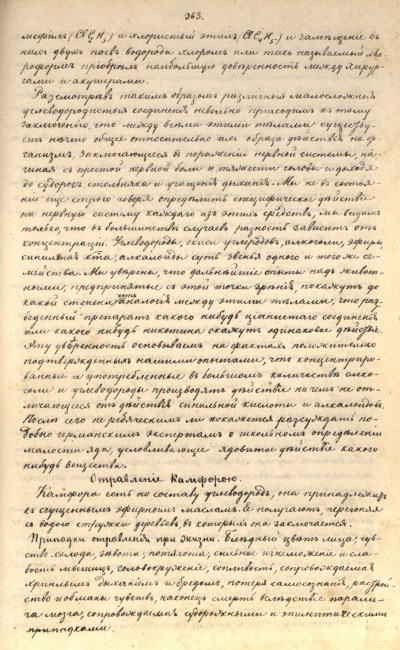 363.
метилъ (Cl C₂ H₃) и хлористый этилъ (Cl C₄ H₅) и замѣщеніе въ
нихъ двухъ паевъ водорода хлоромъ или такъ называемый хло-
роформъ пріобрѣлъ наибольшую довѣренность между хирур-
гами и акушерами.
Разсмотрѣвъ такимъ образомъ различныя малосложныя
углеводородистыя соединенія невольно приходимъ къ тому
заключенію, что между всѣми этими тѣлами существу-
етъ нѣчто общее относительно ихъ образа дѣйствія на ор-
ганизмъ, заключающееся въ пораженіи нервной системы, на-
чиная съ простой нервной боли и тяжести головы и доходя
до судорогъ столбняка и учащенія дыханія. Мы не въ состоя-
ніи еще строго говоря опредѣлить специфическое дѣйствіе
на нервную систему каждаго изъ этихъ средствъ, мы видимъ
только, что въ большинствѣ случаевъ разность зависитъ отъ
концентраціи. Углеводороды, окиси углеродовъ, алкоголи, эфиры,
синильная к̃та, алкалоиды суть звенья одного и того же се-
мейства. Мы увѣрены, что дальнѣйшіе опыты надъ живот-
ными, предпринятые съ этой точки зрѣнія, покажутъ до
какой степени есть аналогія между этими тѣлами, что раз-
веденный препаратъ какого нибудь ціанистаго соединенія
или какого нибудь никотина окажутъ одинаковое дѣйствіе.
Эту увѣренность основываемъ на фактахъ положительно
подтвержденныхъ нашими опытами, что концентриро-
ванные и употребленные въ большомъ количествѣ алко-
голи и углеводороды производятъ дѣйствіе ничѣмъ не от-
личающееся отъ дѣйствія синильной кислоты и алкалоидовъ.
Послѣ сего не ребяческимъ ли покажется разсуждать по-
добно германскимъ экспертамъ о школьномъ опредѣленіи
малости яда, условливающее ядовитое дѣйствіе какого
нибудь вещества.
Отравленіе Камфорою.
Камфора есть по составу углеводородъ, она принадлежитъ
къ сгущеннымъ эфирнымъ масламъ. Ее получаютъ, перегоняя
съ водою стружки деревьевъ, въ которыхъ она заключается.
Припадки отравленія при жизни. Блѣдный цвѣтъ лица, чув-
ство холода, зѣвота, потягота, сильное изнеможеніе и сла-
бость мышцъ, головокруженіе, сонливость, сопровождаемая
хриплымъ дыханіемъ и бредомъ, потеря самосознанія, разстрой-
ство и обманы чувствъ, наконецъ смерть вслѣдствіе парали-
ча мозга, сопровождаемая судорожными и эпилептическими
припадками.